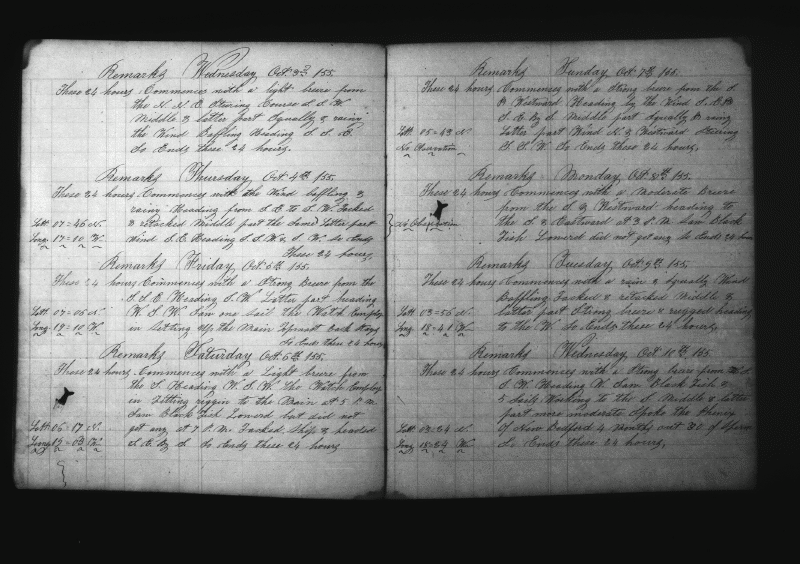 Remarks Wednesday Oct. 3rd 155.
These 24 hours Commences with a light breeze from
the N N E Stearing Course S S W
Middle & latter part Squally & rainy
the Wind Baffling Heading S S E
So Ends these 24 hours.
Remarks Thursday, Oct. 4th 155.
These 24 hours Commences with the Wind baffling &
rainy Heading from S E to S. W. Tacked
Latt 07=46 N. & retacked Middle part the Same Latter part
Long. 17=10 W. Wind S. E Heading S. S. W. & S. W. So Ends
These 24 hours,
Remarks Friday Oct. 5th 155.
These 24 hours Commences with a Strong Breeze from the
S. S. E Heading S. W. Latter part heading
Latt 07=05 N W. S. W. Saw one sail the Watch Employ
Long. 19=10 W. in Setting Up the Main Back Stays
So Ends these 24 hours
Remarks Saturday Oct. 6th 155.
These 24 hours Commences with a Light breeze from
the S. Heading W. S. W. The Watch Employ
in Setting riggin to the Main At 5 P. M.
Saw Black Fish Lowerd but did not
Latt 06=17 N. get any at 7 P. M. Tacked Ship & headed
Long 19=03 W. S. E. By S So Ends these 24 hours
Remarks Sunday Oct. 7th 155.
These 24 hours Commences with a Strong breeze from the S.
& Westward Heading by the Wind S. E.
S. E. By S Middle part Squally & rainy
Latt. 05=43 N. Latter part Wind N. & Westward Stearing
No Observation S. S. W. So Ends these 24 hours,
Remarks Monday, Oct. 8th 155.
These 24 hours Commences with a Moderate breeze
from the S & Westward heading to
No Observation the S & Eastward At 3 P. M. Saw Black
Fish Lowerd did not get any So Ends 24 hours
Remarks Tuesday Oct. 9th 155,
These 24 hours Commences with a rain & Squally Wind
Baffling Tacked & retacked Middle &
Latt 03=55 N. latter part Strong breeze & rugged heading
Long. 18=41 W. to the W. So Ends these 24 hours,
Remarks Wednesday, Oct 10th 155.
These 24 hours Commences with a Strong breeze from
S. W. Heading W. Saw Black Fish &
5 Sails Working to the S Middle & latter
part more moderate Spoke the Henry
Latt. 03=29 N. Of New Bedford 4 Months out
Long 18=29 W. So Ends these 24 hours,